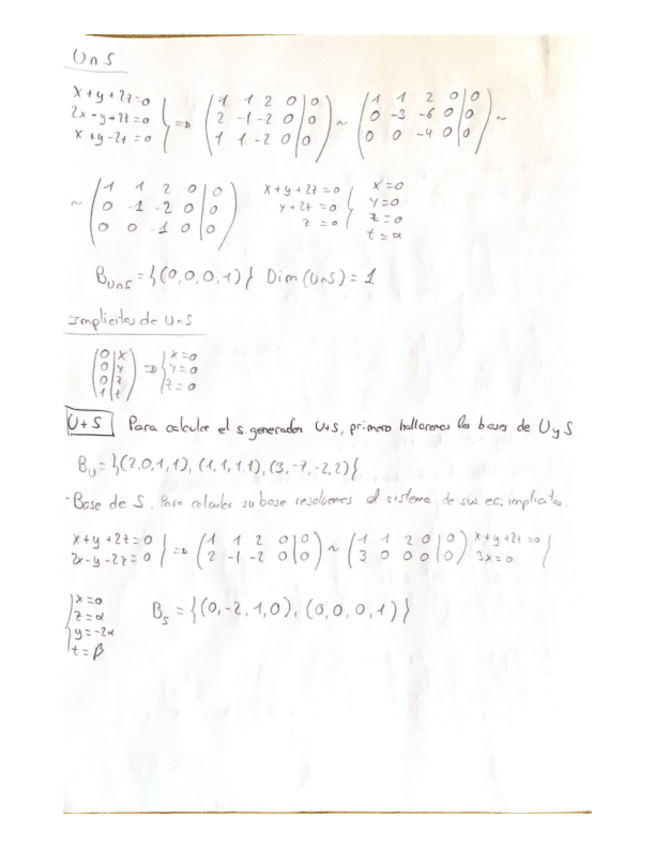 U∩S
x+y+2z=0
2x-y+2z=0
x+y-2z=0
} => (1 1 2 0|0) ~ (1 1 2 0|0) ~
(2 -1 -2 0|0) (0 -3 -6 0|0)
(1 1 -2 0|0) (0 0 -4 0|0)
~ (1 1 2 0|0) x+y+2z=0 { x=0
(0 -1 -2 0|0) y+2z=0 { y=0
(0 0 -1 0|0) z=0 { z=0
t=α
B_{U∩S}={(0,0,0,1)} Dim(U∩S)=1
Implicitas de U∩S
(0|x) => { x=0
(0|y) { y=0
(0|z) { z=0
(1|t)
U+S Para calcular el s. generador U+S, primero hallaremos las bases de U y S
B_U={(2,0,1,1), (1,1,1,1), (3,-7,-2,2)}
- Base de S. Para calcular su base resolvemos el sistema de sus ec. implicitas.
x+y+2z=0 } => (1 1 2 0|0) ~ (1 1 2 0|0) x+y+2z=0 }
2x-y-2z=0 (2 -1 -2 0|0) (3 0 0 0|0) 3x=0
x=0
z=α
y=-2α
t=β
B_S={(0,-2,1,0), (0,0,0,1)}